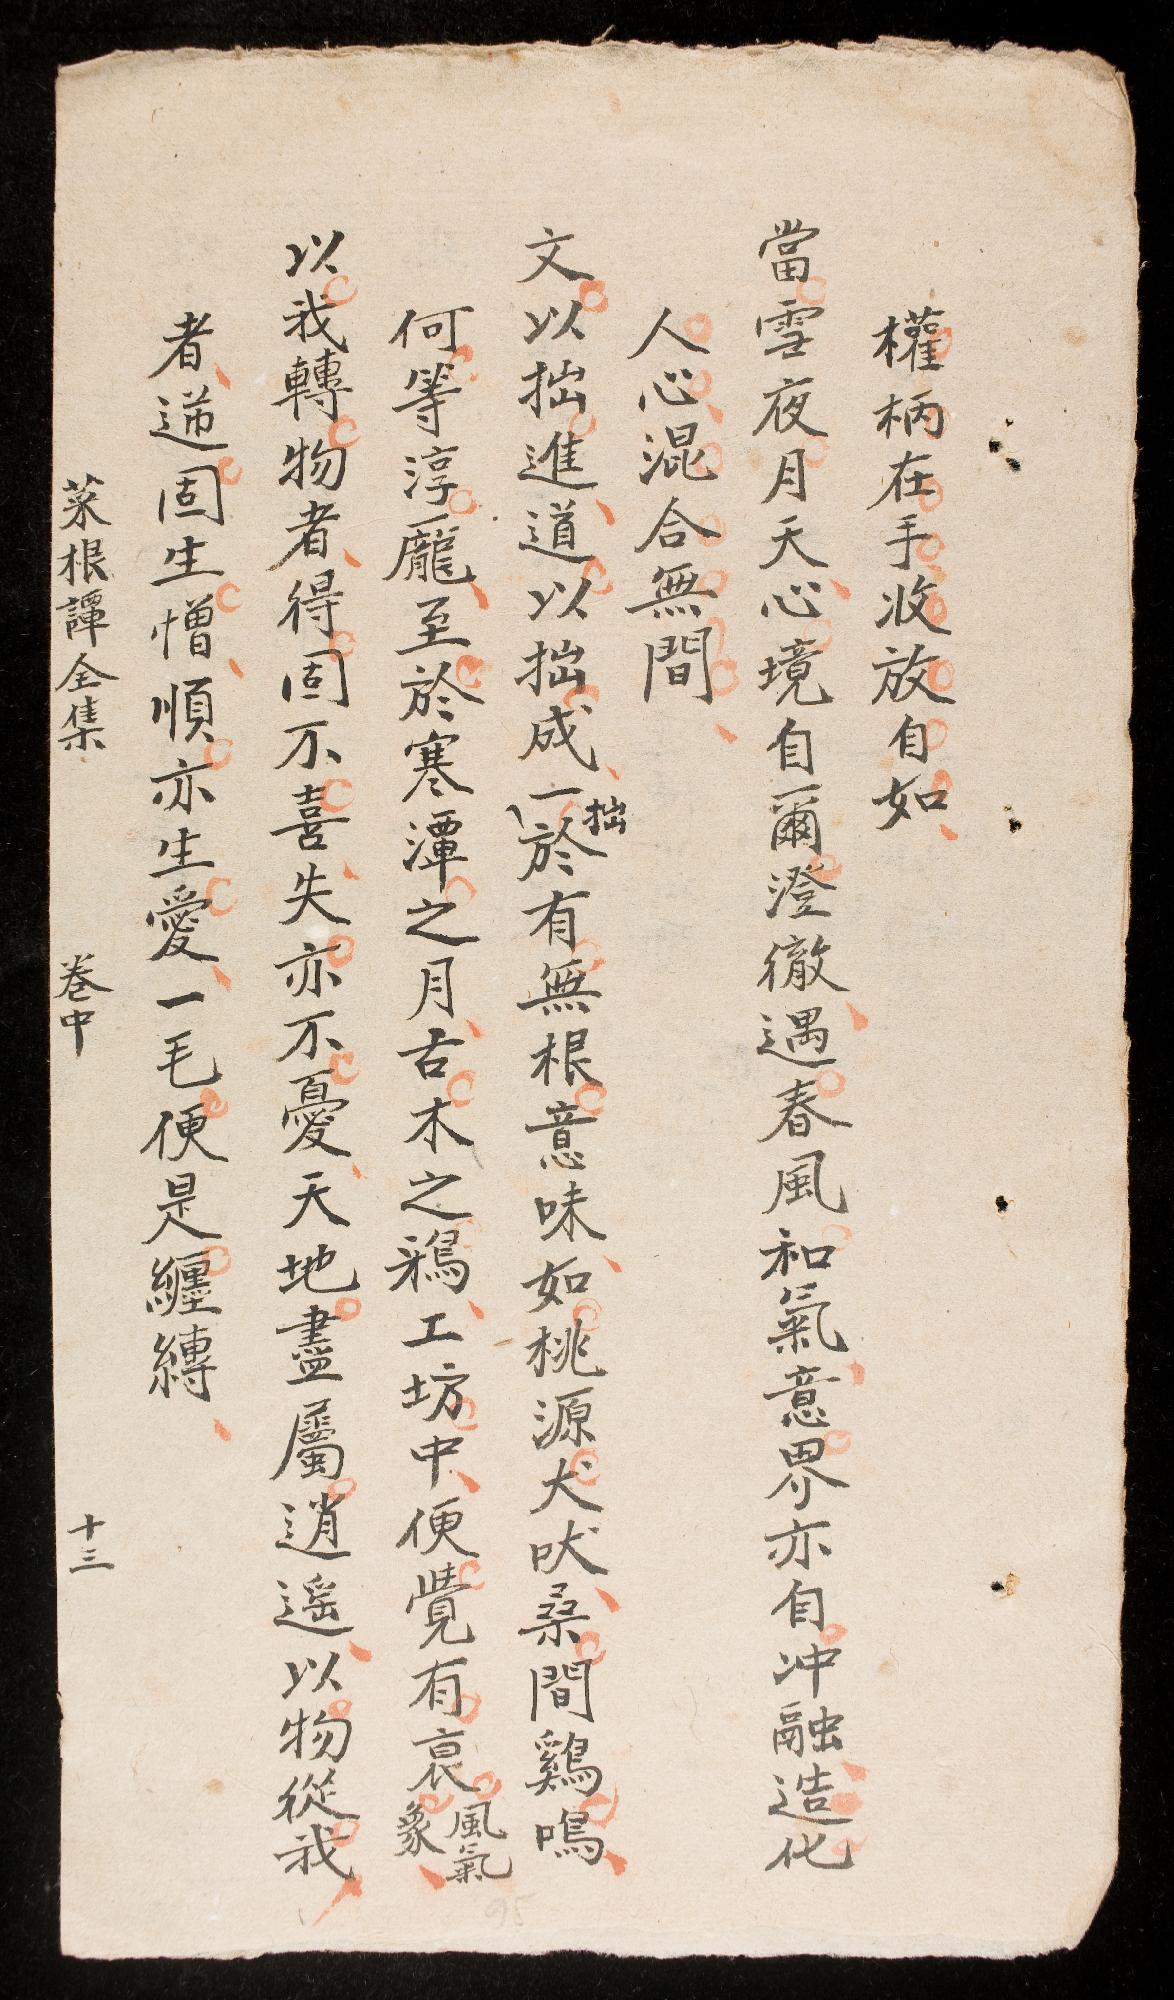 權柄在手收放自如
當雪夜月天心境自爾澄徹遇春風和氣意界亦自冲融造化
人心混合無間
文以拙進道以拙成一拙於有無根意味如桃源犬吠桑間鷄鳴
何等淳龎至於寒潭之月古木之鴉工坊中便覺有衰風氣象
以我轉物者得固不喜失亦不憂天地盡屬逍遥以物從我
者逆固生憎順亦生愛一毛便是纏縛
菜根譚全集 卷中 十三
95